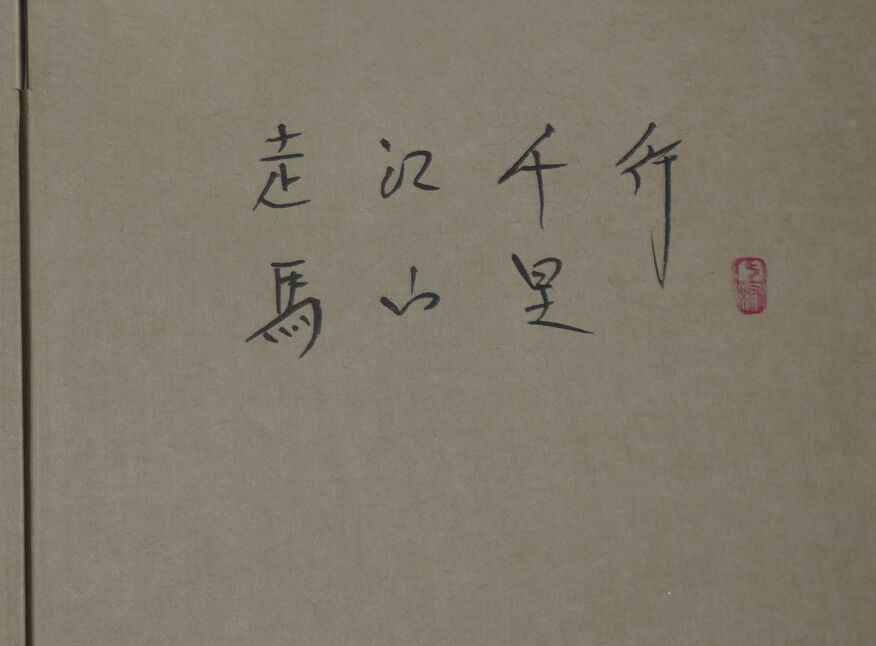 行
千里
江山
走馬